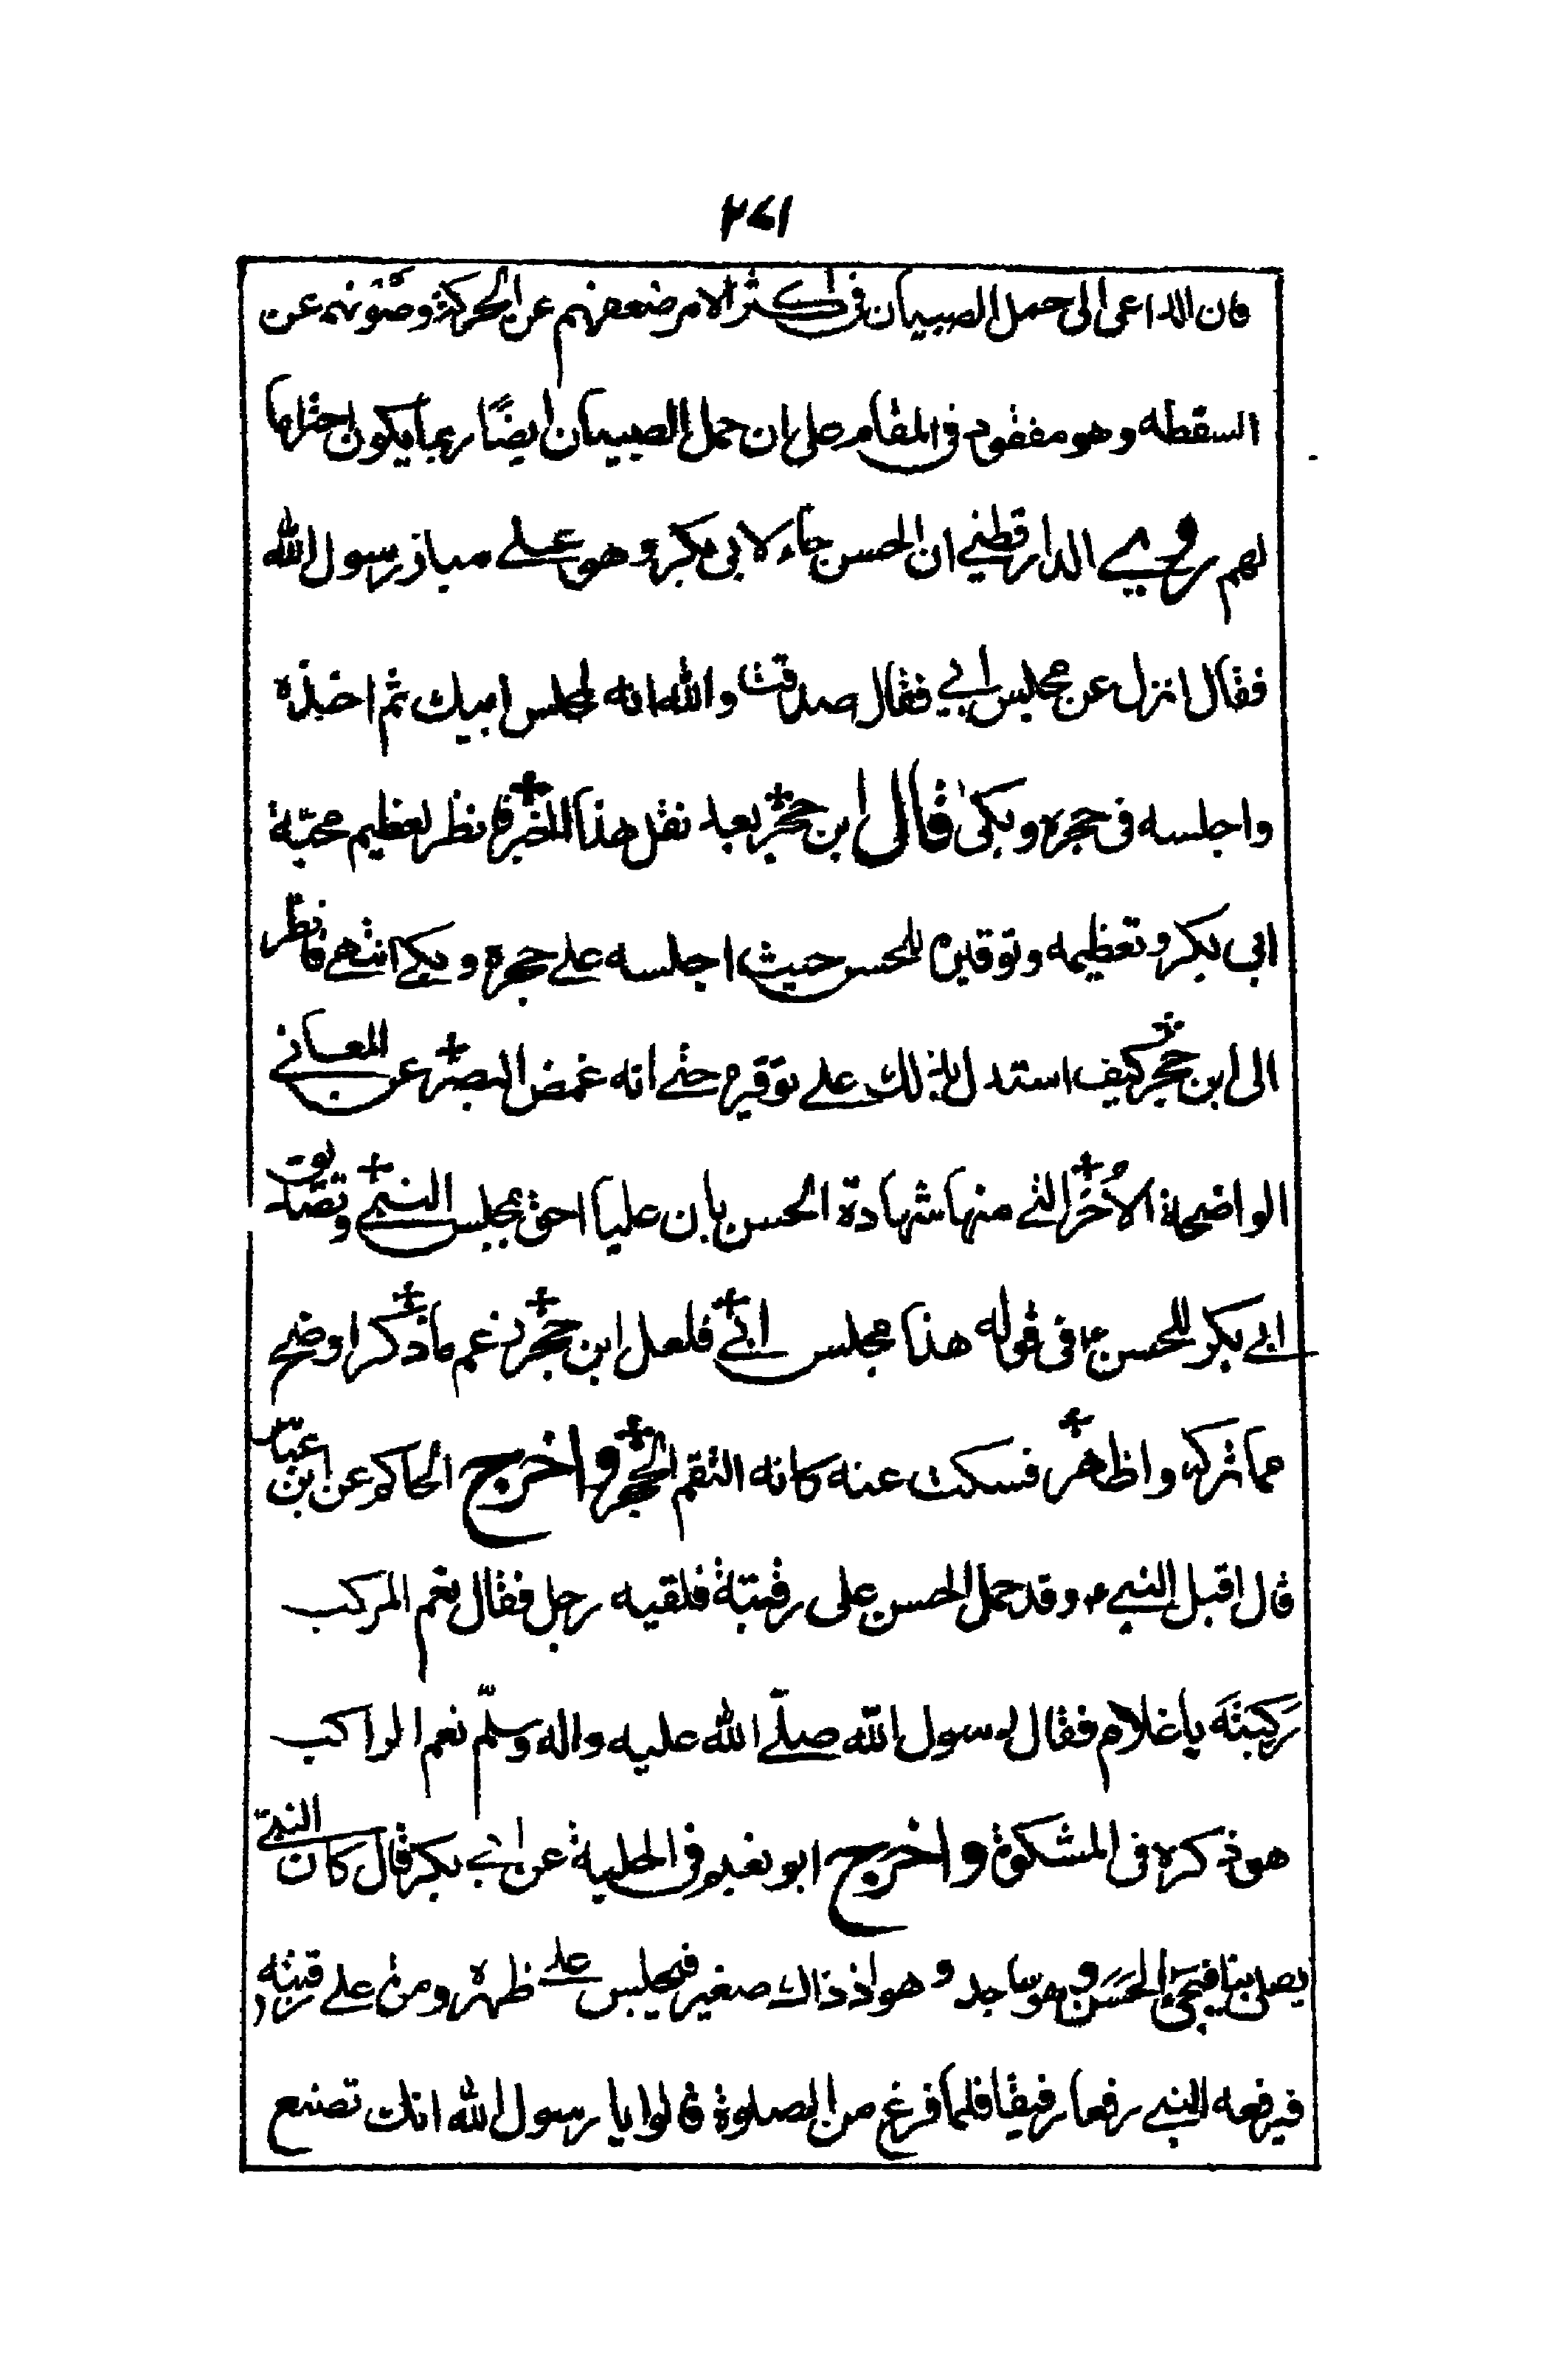 ٢٧١
فان الداعى الى حمل الصبيان فى اكثر الامر ضعفهم عن الحركة وصونهم عن
السقطه وهو مفقود فى المقام على ان حمل الصبيان ايضًا ربما يكون احتراما
لهم روى الدارقطنے ان الحسن جاء لابى بكر وهو علے منبر رسول الله
فقال انزل عن مجلس ابي فقال صدقت والله انه لمجلس ابيك ثم اخذه
واجلسه فى حجره وبكى قال ابن حجر بعد نقل هذا الخبر فانظر لعظيم محبّة
ابى بكر وتعظيمه وتوقيره للحسن حيث اجلسه علے حجره وبكے انتهے فانظر
الى ابن حجر كيف استدل بذلك علے توقيره حتے انه غمض البصر عن المعانے
الواضحة الأُخر التے منها شهادة الحسن بان عليا احق بمجلس النبے وتصديق
ابے بكر للحسن ع فى قوله هذا مجلس ابے فلعل ابن حجر زعم ما ذكر اوضح
مما تركه واظهر فسكت عنه كانه التقم الحجر واخرج الحاكم عن ابن عباس
قال اقبل النبے ص وقد حمل الحسن على رقبتة فلقيه رجل فقال نعم المركب
رَكِبتَه ياغلام فقال رسول الله صلّے الله عليه واله وسلّم نعم الراكب
هو ذكره فى المشكوة واخرج ابو نعيم فى الحلية عن ابے بكر قال كان النبے
يصلى بنا فيجئ الحَسَن وهو ساجد و هو اذ ذاك صغير فيجلس علے ظهره ومرة علے رقبته
فيرفعه النبے رفعا رفيقا فلما فرغ من الصلوة قالوا يا رسول الله انك تصنع